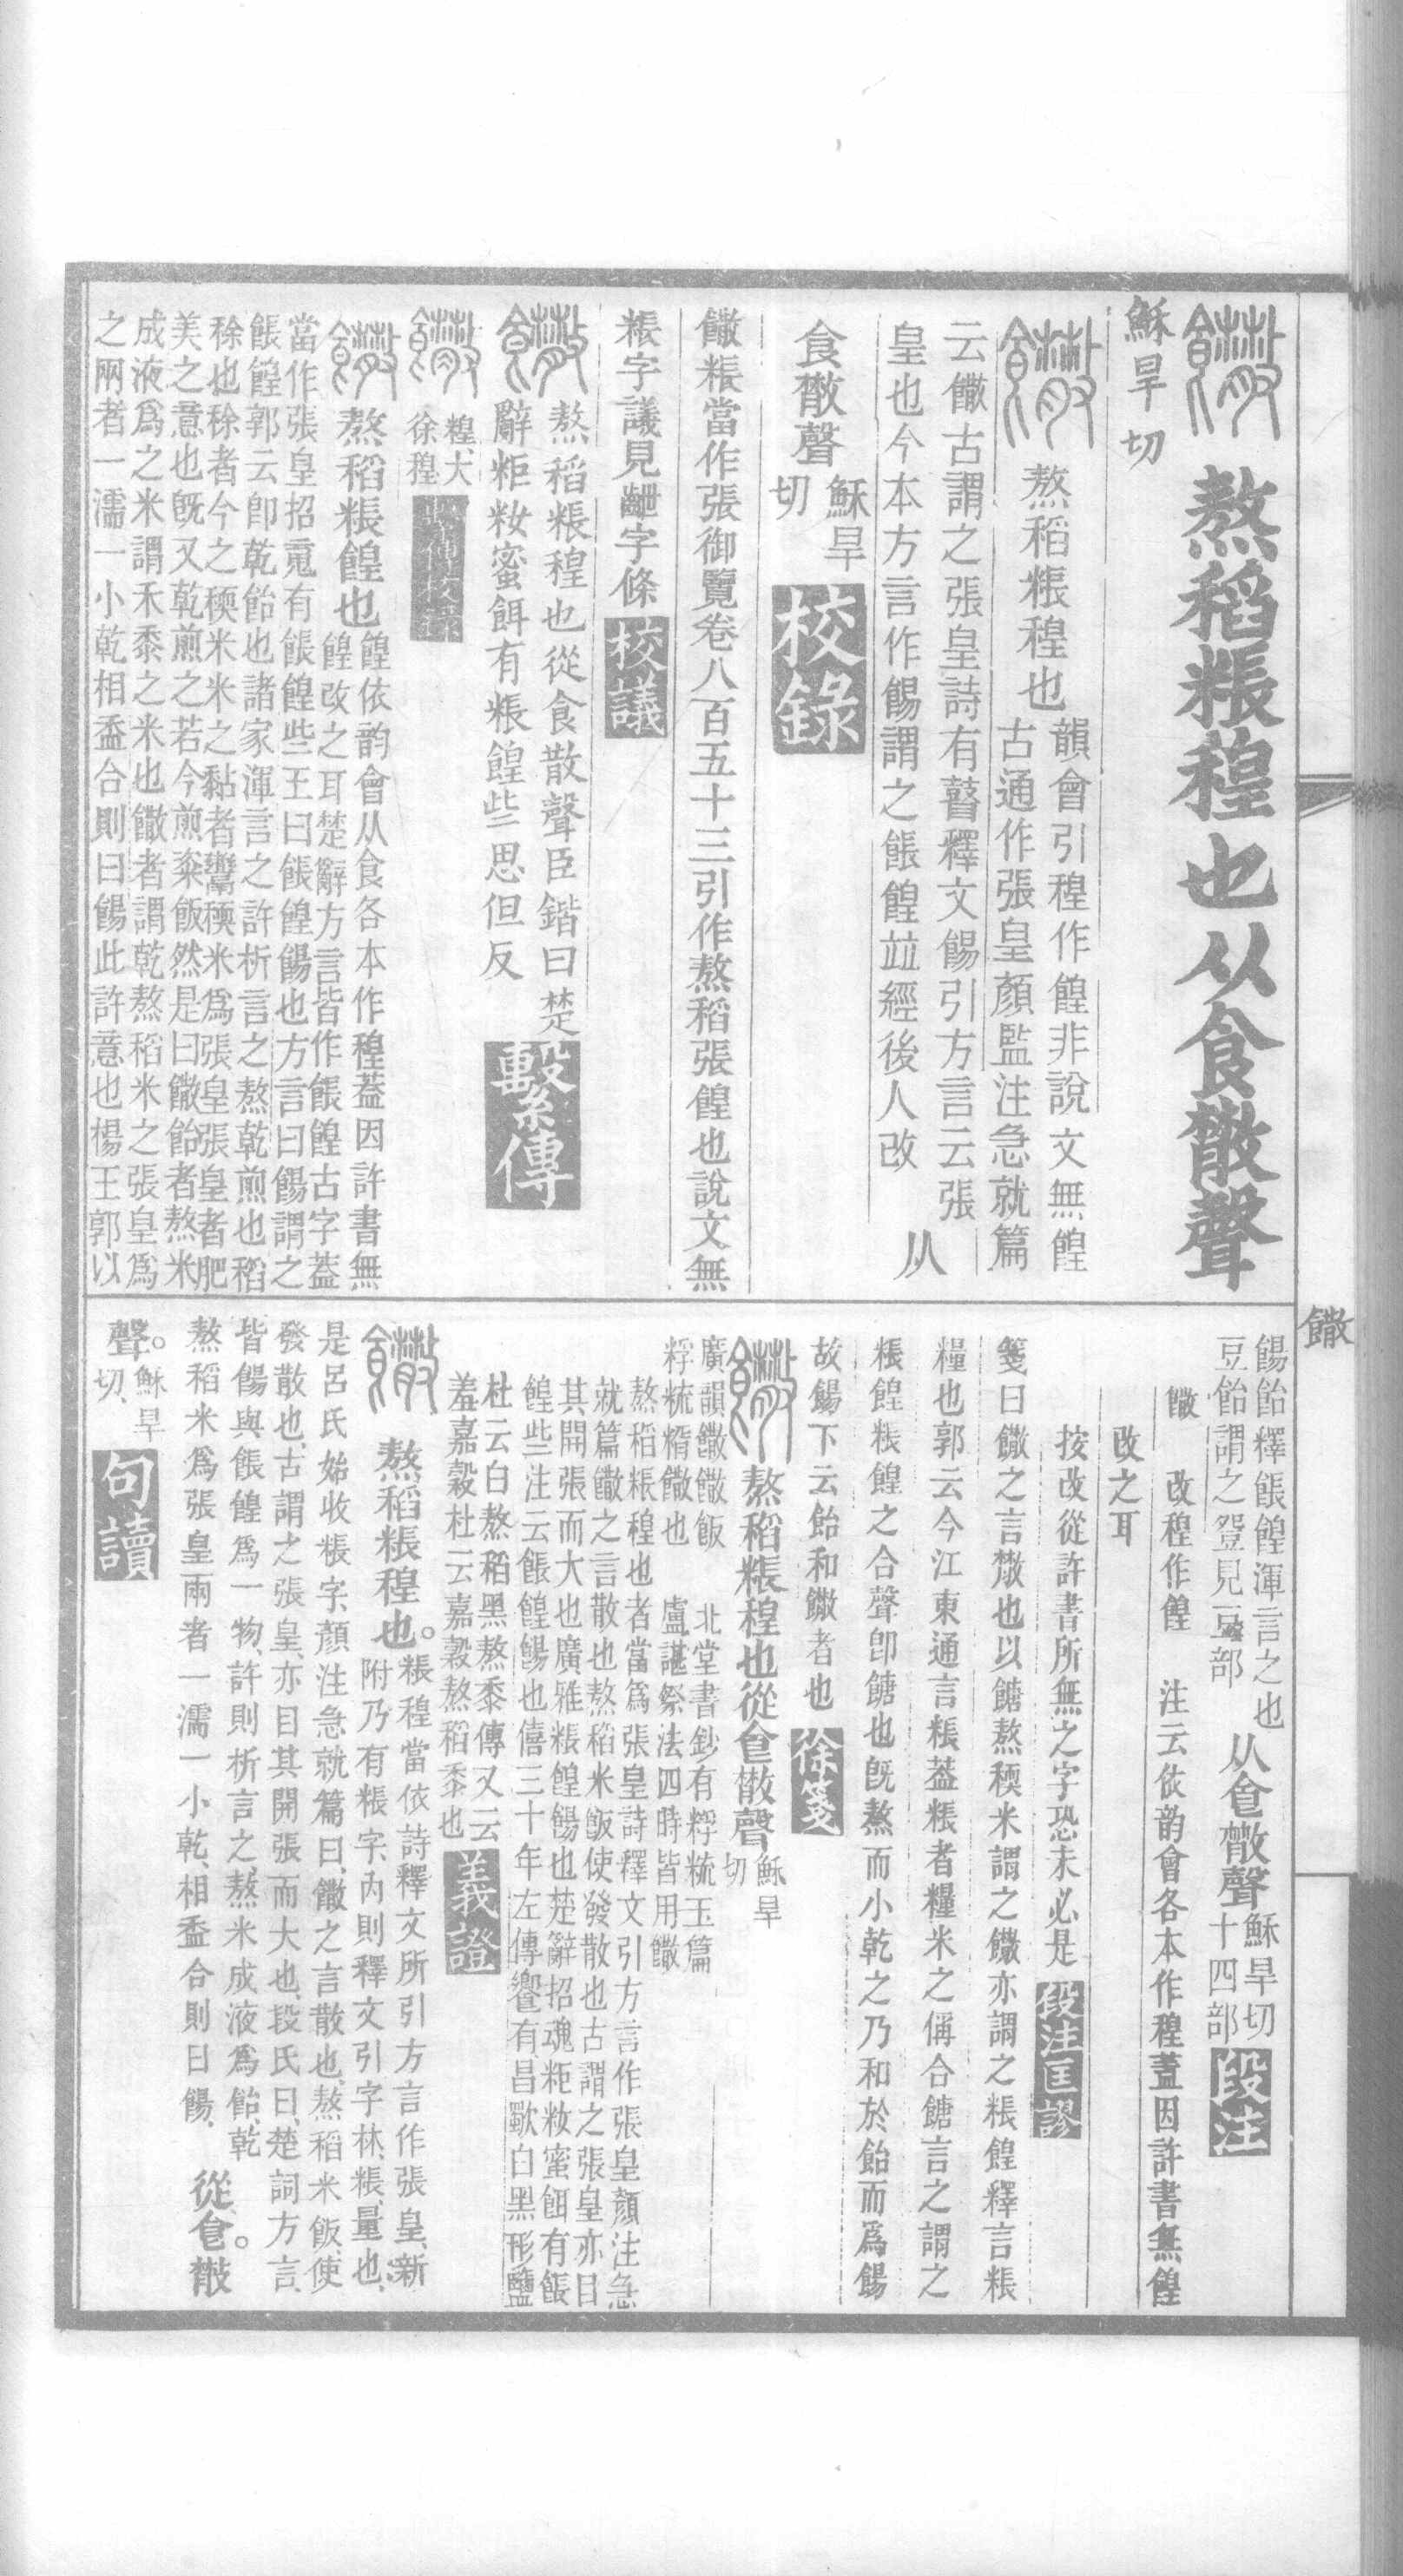 熬稻粻䅣也从食㪚聲
穌旱切
熬稻粻䅣也韻會引䅣作餭非說文無餭
古通作張皇顏監注急就篇
云饊古謂之張皇詩有瞽釋文餳引方言云張
皇也今本方言作餳謂之餦餭竝經後人改　从
食㪚聲穌旱切　校錄
饊粻當作張御覽卷八百五十三引作熬稻張餭也說文無
粻字議見齜字條　校議
熬稻粻䅣也從食散聲臣鍇曰楚
辭粔籹蜜餌有粻餭些思但反　繫傳
䅣大
徐䅣　繫傳校錄
熬稻粻餭也餭依韵會从食各本作䅣葢因許書無
餭改之耳楚辭方言皆作餦餭古字葢
當作張皇招䰟有餦餭些王曰餦餭餳也方言曰餳謂之
餦餭郭云卽乾飴也諸家渾言之許析言之熬乾煎也稻
稌也稌者今之稬米米之黏者鬻稬米爲張皇張皇者肥
美之意也旣又乾煎之若今煎粢飯然是曰饊飴者熬米
成液爲之米謂禾黍之米也饊者謂乾熬稻米之張皇爲
之兩者一濡一小乾相盉合則曰餳此許意也楊王郭以
餳飴釋餦餭渾言之也
豆飴謂之䇺見豆部　从食㪚聲穌旱切
十四部　段注
饊　改䅣作餭　注云依韵會各本作䅣蓋因許書無餭
改之耳
按改從許書所無之字恐未必是　段注匡謬
箋曰饊之言㪚也以餹熬稬米謂之饊亦謂之粻餭釋言粻
糧也郭云今江東通言粻葢粻者糧米之偁合餹言之謂之
粻餭粻餭之合聲卽餹也旣熬而小乾之乃和於飴而爲餳
故餳下云飴和饊者也　徐箋
熬稻粻䅣也從食㪚聲穌旱
切
廣韻饊饊飯　北堂書鈔有粰䊐玉篇
粰䊐糈饊也　盧諶祭法四時皆用饊
熬稻粻䅣也者當爲張皇詩釋文引方言作張皇顏注急
就篇饊之言散也熬稻米飯使發散也古謂之張皇亦目
其開張而大也廣雅粻餭餳也楚辭招魂粔籹蜜餌有餦
餭些注云餦餭餳也僖三十年左傳饗有昌歜白黑形鹽
杜云白熬稻黑熬黍傳又云
羞嘉穀杜云嘉穀熬稻黍也　義證
熬稻粻䅣也。粻䅣當依詩釋文所引方言作張皇、新
附乃有粻字、內則釋文引字林、粻、量也、
是呂氏始收粻字、顏注急就篇曰、饊之言散也、熬稻米飯使
發散也、古謂之張皇、亦目其開張而大也、段氏曰、楚詞方言、
皆餳與餦餭爲一物、許則析言之、熬米成液爲飴、乾
熬稻米爲張皇、兩者一濡一小乾、相盉合則曰餳、　從食。㪚
聲。穌旱
切、　句讀
饊